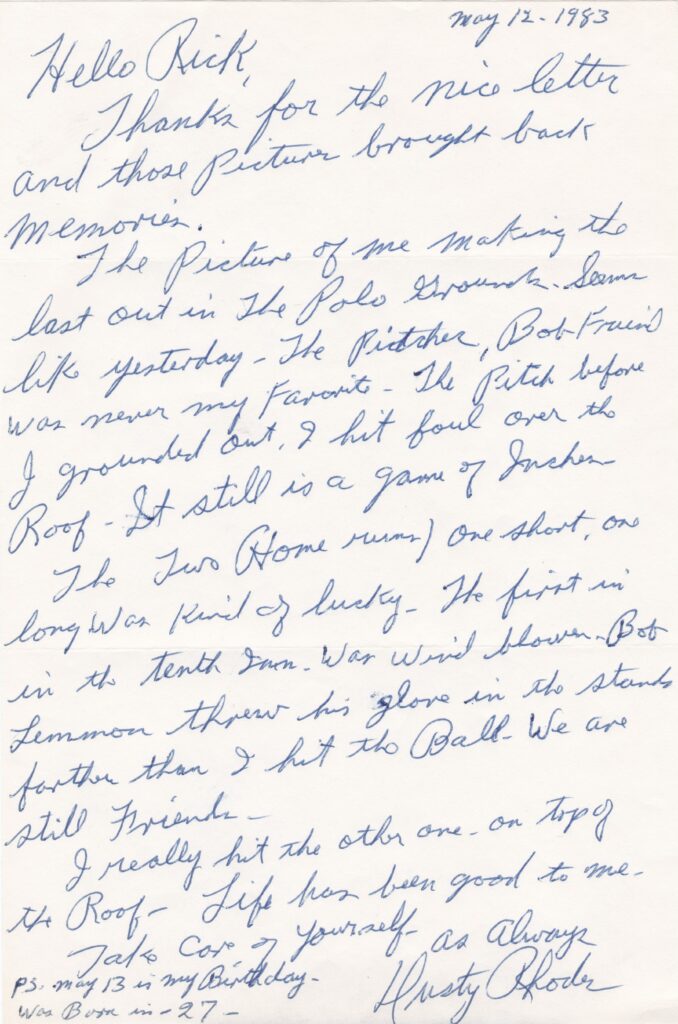 May 12-1983
Hello Rick,
Thanks for the nice letter
and those Pictures brought back
memories.
The Picture of me making the
last out in The Polo Grounds. Seems
like yesterday - The Pictcher, Bob Friend
was never my Favorite - The Pitch before
I grounded out, I hit foul over the
Roof - It still is a game of Inches
The Two (Home runs) one short, one
long Was Kind of lucky - The first in
in the tenth Inn. Was Wind blown - Bob
Lemmon threw his glove in the stands
farther than I hit the Ball - We are
still Friends -
I really hit the other one - on top of
the Roof - Life has been good to me -
Take Care of Yourself -
as Always
Dusty Rhodes
PS. May 13 is my Birthday -
Was Born in - 27 -